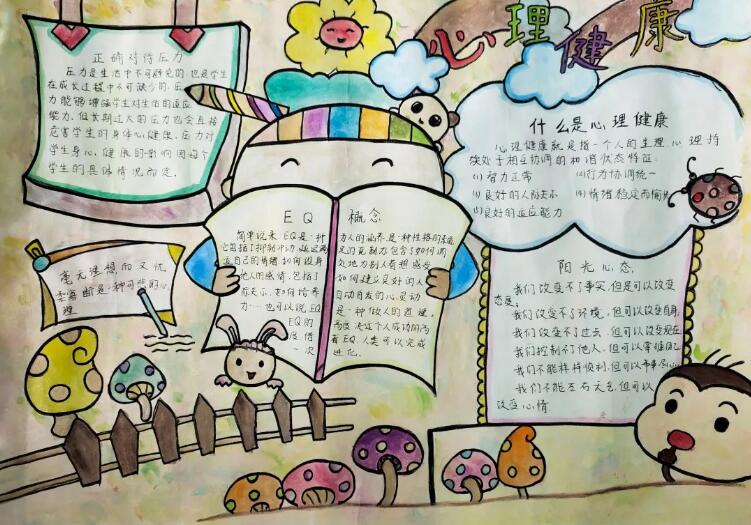 心理健康
正确对待压力
压力是生活中不可避免的,也是学生
在成长过程中不可缺少的.压
力能够增强学生对生活的适应
能力.但长期过大的压力也会直接
危害学生的身体心健康.压力对
学生身心健康的影响因每个
学生的具体情况而定.
什么是心理健康
心理健康就是指一个人的生理、心理持
续处于相互协调的和谐状态特征:
(1)智力正常 (2)行为协调统一
(3)良好的人际关系 (4)情绪稳定而愉快
(5)良好的适应能力
EQ 概念
简单说来,EQ是一种
自己的情绪如何设身
他人的感情,包括了
力……也可以说EQ
EQ的
一次
力人的涵养,是一种性格的素质.
处地为别人着想感受
如何建立良好的人
自动自发的心灵动
是一种做人的道理,
度决定个人成功的两
着EQ.人类可以完成
进化.
毫无理想而又优
柔寡断是一种可悲的心
理
阳光心态
我们改变不了事实,但是可以改变
态度,
我们改变不了环境,但可以改变自身,
我们改变不了过去,但可以改变现在
我们控制不了他人,但可以掌握自己
我们不能样样顺利,但可以事事尽心
我们不能左右天气,但可以
改变心情